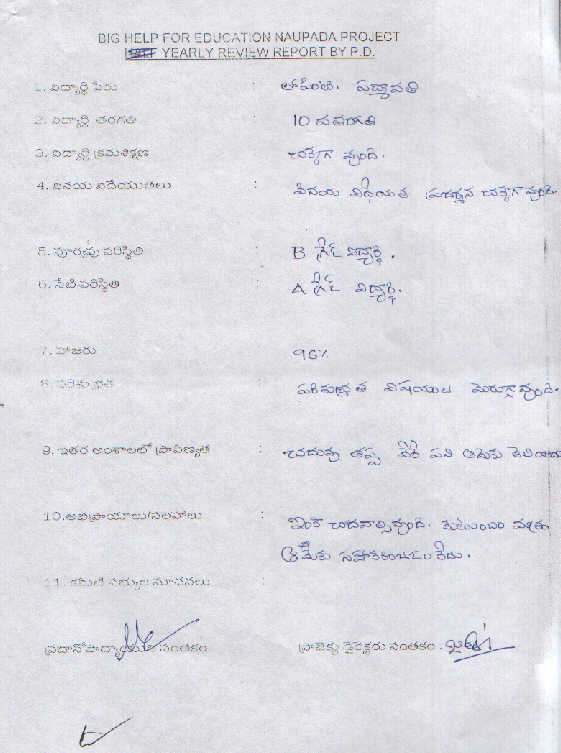 BIG HELP FOR EDUCATION NAUPADA PROJECT
YEARLY REVIEW REPORT BY P.D.
1. విద్యార్థి పేరు : పద్మావతి
2. విద్యార్థి తరగతి : 10 తరగతి
3. విద్యార్థి క్రమశిక్షణ : చక్కగా వుంది.
4. వినయ విధేయతలు : వినయ విధేయత ప్రదర్శన చక్కగా వుంది.
5. పూర్వపు పరిస్థితి : B గ్రేడ్ విద్యార్థి.
6. నేటి పరిస్థితి : A గ్రేడ్ విద్యార్థి.
7. హాజరు 96%
8. పరిశుభ్రత పరిశుభ్రత విషయంలో మెరుగ్గా వుంది.
9. ఇతర అంశాలలో ప్రావీణ్యత : చదువు తప్ప వేరే పని ఆమెకు తెలియదు
10. అభిప్రాయాలు/సలహాలు : ఇంకా చదవాల్సి వుంది. కుటుంబం
ఆమెకు సహకరించుటలేదు.
11. కమిటీ సభ్యుల సూచనలు
ప్రధానోపాధ్యాయుని సంతకం ప్రాజెక్టు డైరెక్టరు సంతకం